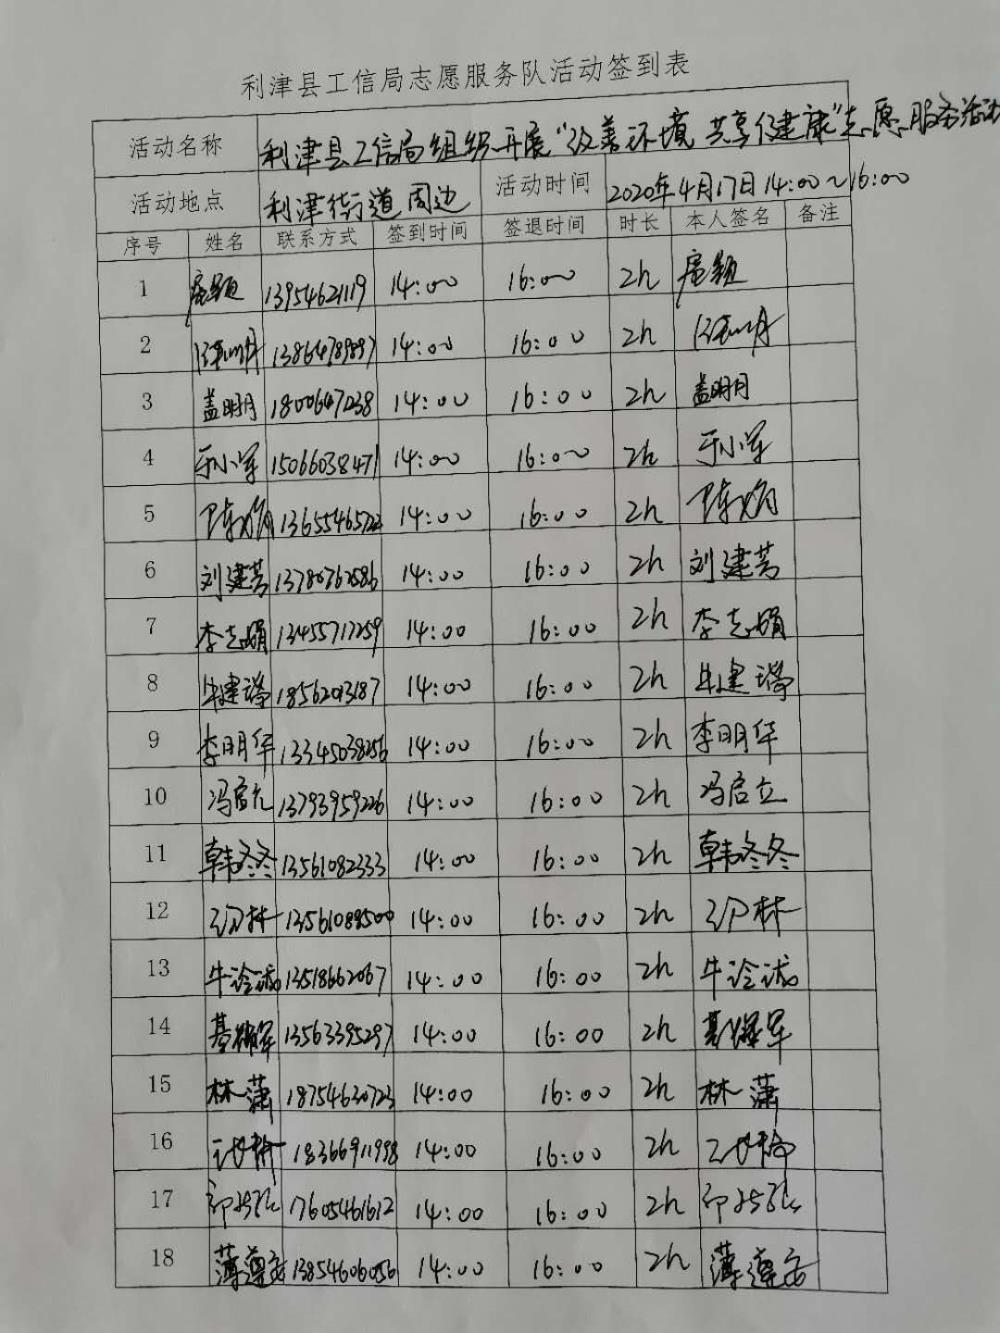 利津县工信局志愿服务队活动签到表
活动名称 利津县工信局组织开展"改善环境 共享健康"志愿服务活动
活动地点 利津街道周边 活动时间 2020年4月17日14:00~16:00
序号 姓名 联系方式 签到时间 签退时间 时长 本人签名 备注
1 13954621119 14:00 16:00 2h
2 14:00 16:00 2h
3 盖明月 18006471238 14:00 16:00 2h 盖明月
4 于小军 15066038471 14:00 16:00 2h 于小军
5 陈娟 14:00 16:00 2h 陈娟
6 刘建芳 14:00 16:00 2h 刘建芳
7 李志娟 13455717259 14:00 16:00 2h 李志娟
8 牛建 14:00 16:00 2h 牛建
9 李明华 13345038256 14:00 16:00 2h 李明华
10 冯启立 13793959226 14:00 16:00 2h 冯启立
11 韩冬冬 13561082333 14:00 16:00 2h 韩冬冬
12 14:00 16:00 2h
13 14:00 16:00 2h
14 13563395297 14:00 16:00 2h
15 林萧 18754630723 14:00 16:00 2h 林萧
16 18366911998 14:00 16:00 2h
17 17605461612 14:00 16:00 2h
18 薄遵安 13854606056 14:00 16:00 2h 薄遵安